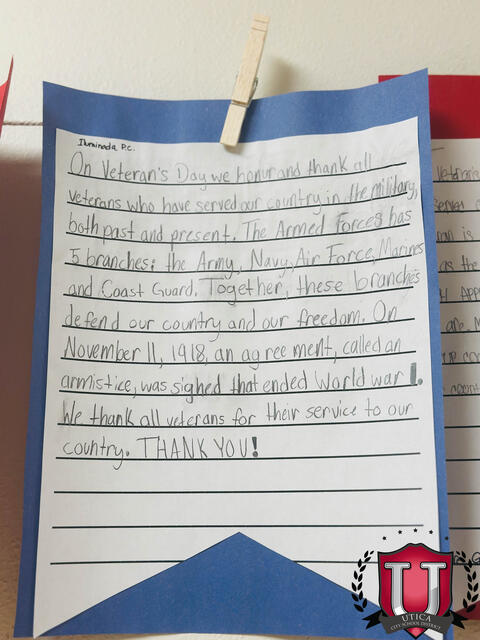 Iluminada P.C.
On Veteran's Day we honur and thank all
veterans who have served our country in the military,
both past and present. The Armed Forces has
5 branches: the Army, Navy, Air Force, Marines
and Coast Guard. Together, these branches
defend our country and our freedom. On
November 11, 1918, an agreement, called an
armistice, was sighed that ended World war 1.
We thank all veterans for their service to our
country. THANK YOU!
U
UTICA
CITY SCHOOL DISTRICT